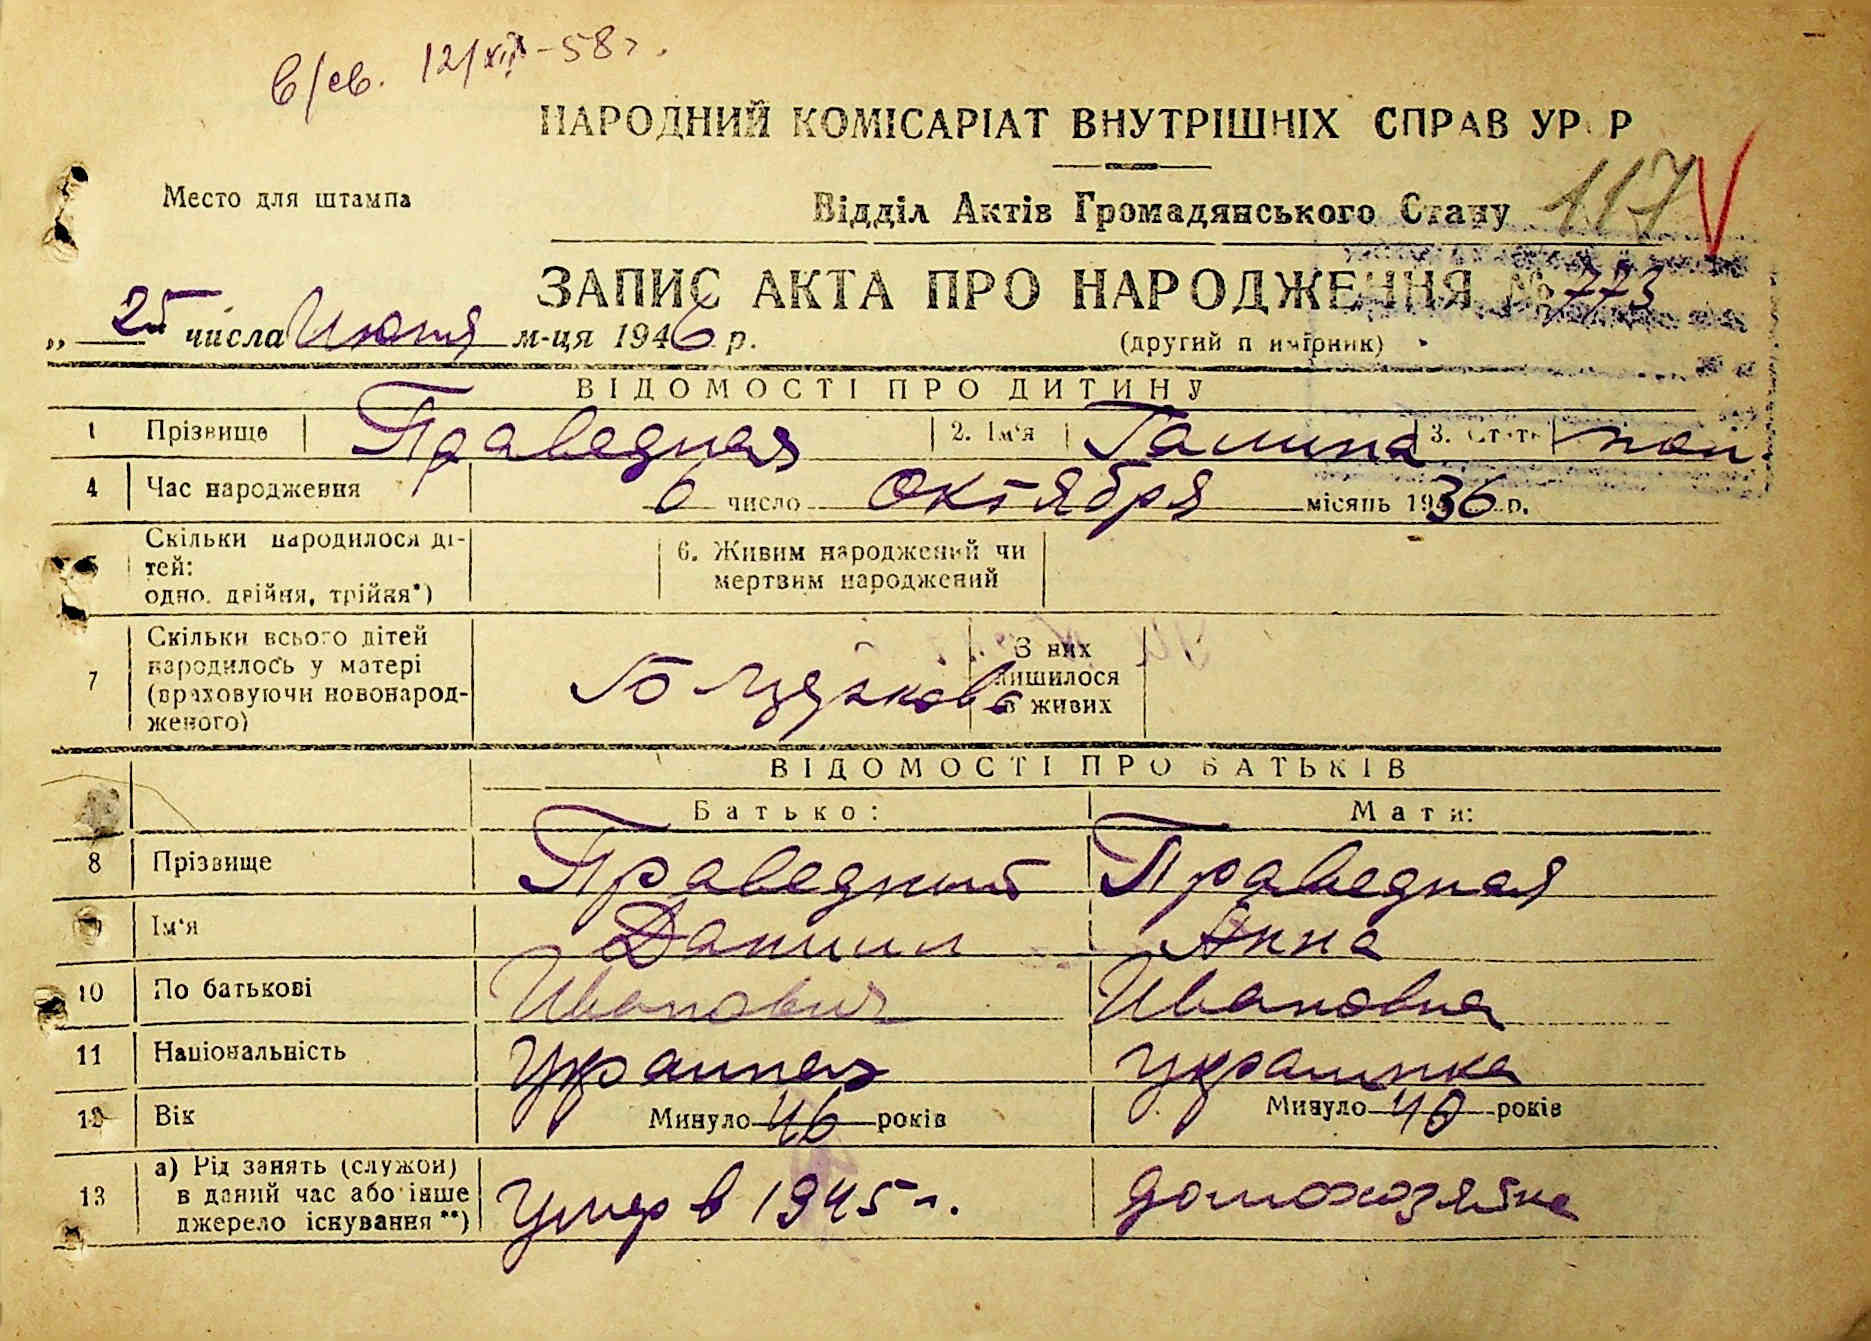 в/св. 12/XII-58 г.
НАРОДНИЙ КОМІСАРІАТ ВНУТРІШНІХ СПРАВ УР Р
Место для штампа
Відділ Актів Громадянського Стану
117
ЗАПИС АКТА ПРО НАРОДЖЕННЯ № 773
„ 25 числа Июня м-ця 1946 р.
(другий п имірник)
ВІДОМОСТІ ПРО ДИТИНУ
1 Прізвище Праведная 2. Ім'я Галина 3. Стать
4 Час народження 6 число Октября місяць 1936 р.
5 Скільки народилося ді-
тей:
одно, двійня, трійня*)
6. Живим народжений чи
мертвим народжений
7 Скільки всього дітей
народилось у матері
(враховуючи новонарод-
женого)
З них
лишилося
в живих
ВІДОМОСТІ ПРО БАТЬКІВ
Батько: Мати:
8 Прізвище Праведный Праведная
9 Ім'я Даниил Анна
10 По батькові Иванович Ивановна
11 Національність украинец украинка
12 Вік Минуло 46 років Минуло 40 років
13 а) Рід занять (служби)
в даний час або інше
джерело існування **)
Умер в 1945 г. домохозяйка